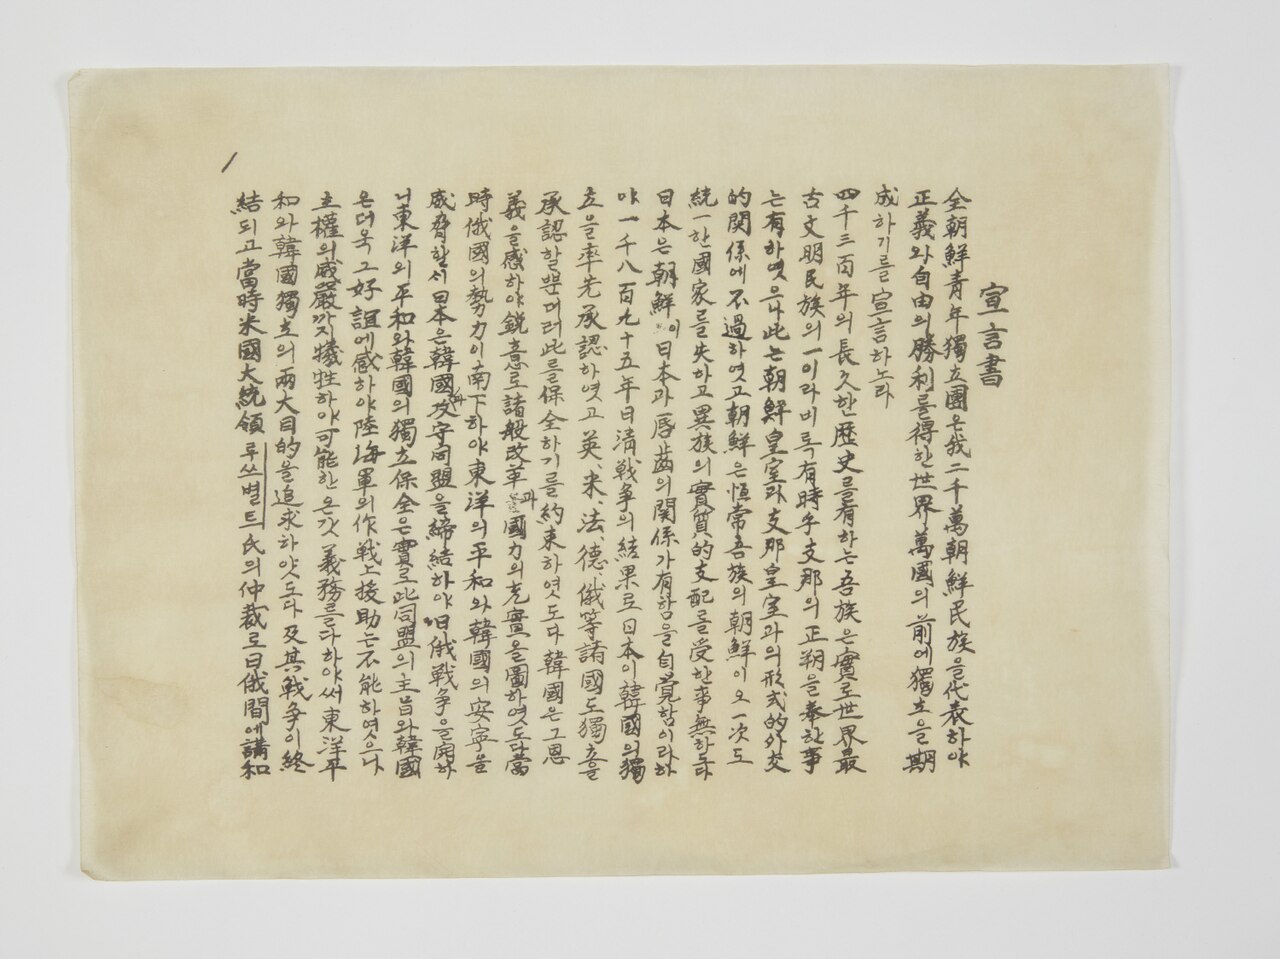 宣言書
全朝鮮青年獨立團은我二千萬朝鮮民族을代表하야
正義와自由의勝利를得한世界萬國의前에獨立을期
成하기를宣言하노라
四千三百年의長久한歷史를有하는吾族은實로世界最
古文明民族의一이라비록有時乎支那의正朔을奉한事
는有하엿으나此는朝鮮皇室과支那皇室과의形式的外交
的關係에不過하엿고朝鮮은恒常吾族의朝鮮이오一次도
統一한國家를失하고異族의實質的支配를受한事無하도다
日本은朝鮮이日本과唇齒의關係가有함을自覺함이라하
야一千八百九十五年日清戰爭의結果로日本이韓國의獨
立을率先承認하엿고英、米、法、德、俄等諸國도獨立을
承認할뿐더러此를保全하기를約束하엿도다韓國은그恩
義을感하야鋭意로諸般改革과國力의充實을圖하엿도다當
時俄國의勢力이南下하야東洋의平和와韓國의安寧을
威脅할시日本은韓國과攻守同盟을締結하야日俄戰爭을開하
니東洋의平和와韓國의獨立保全은實로此同盟의主旨와韓國
은더욱그好誼에感하야陸海軍의作戰上援助는不能하엿으나
主權의威嚴까지犧牲하야可能한온갓義務를다하야써東洋平
和와韓國獨立의兩大目的을追求하얏도다及其戰爭이終
結되고當時米國大統領루쓰별트氏의仲裁로日俄間에講和